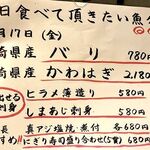 日食べて頂きたい魚
月17日(金)
崎県産 バリ 780円
崎県産 かわはぎ 2,180
出せる刺身
ヒラメ薄造り 580円
しまあじ刺身 580円
真アジ塩焼・煮付 各680円
にぎり寿司盛り合わせ(5貫) 680円